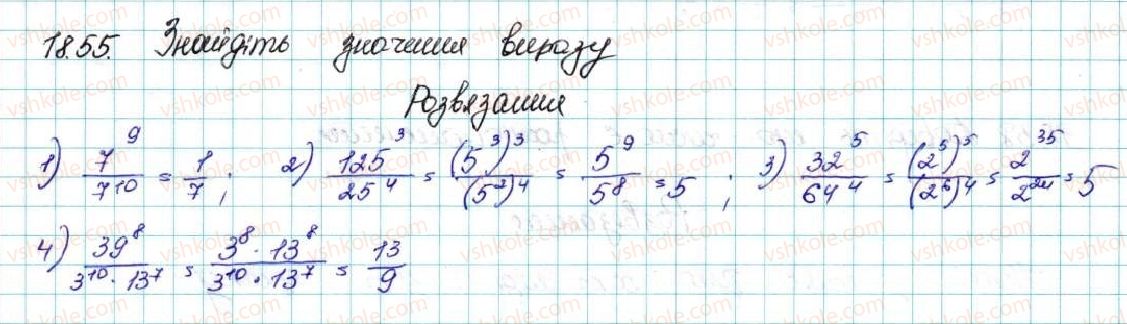 18.55. Знайдіть значення виразу
Розвязання
1) 7^9/7^10 = 1/7; 2) 125^3/25^4 = (5^3)^3/(5^2)^4 = 5^9/5^8 = 5; 3) 32^5/64^4 = (2^5)^5/(2^6)^4 = 2^35/2^24 = 5
4) 39^8/(3^10 · 13^7) = (3^8 · 13^8)/(3^10 · 13^7) = 13/9
vshkole.com